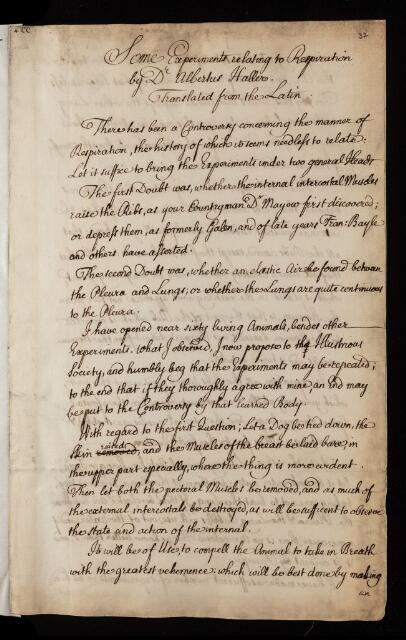 32
Some Experiments relating to Respiration
by Dr Albertus Haller.
Translated from the Latin.
There has been a Controversy concerning the manner of
Respiration, the history of which it seems needless to relate:
Let it suffice to bring the Experiments under two general Heads
The first Doubt was, whether the internal intercostal Muscles
raise the Ribs, as your Countryman Dr Mayow first discovered;
or depress them, as formerly Galen, and of late years Fran: Bayle
and others have asserted.
The second Doubt was, whether an elastic Air be found between
the Pleura and Lungs; or whether the Lungs are quite continuous
to the Pleura.
I have opened near sixty living Animals, besides other
Experiments. what I observed, I now propose to the Illustrious
Society, and humbly beg that the Experiments may be repeated;
to the end that if they thoroughly agree with mine an End may
be put to the Controversy by that learned Body.
With regard to the first Question; Let a Dog be tied down, the
raised
skin removed, and the Muscles of the breast be laid bare, in
the upper part especially, where the thing is more evident.
Then let both the pectoral Muscles be removed, and as much of
the external intercostals be destroyed, as will be sufficent to observe
the state and action of the internal.
It will be of Use, to compell the Animal to take in Breath
with the greatest vehemence: which will be best done by making
an